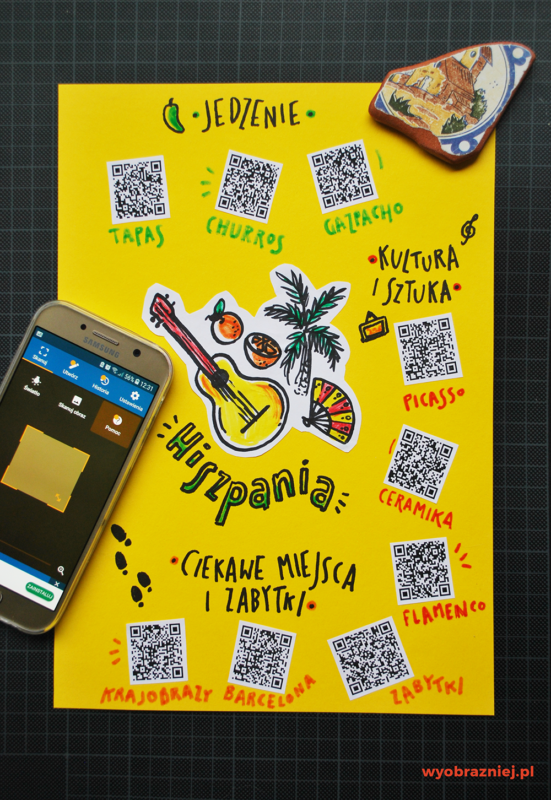 JEDZENIE
TAPAS
CHURROS
GAZPACHO
KULTURA
I SZTUKA
PICASSO
CERAMIKA
FLAMENCO
Hiszpania
CIEKAWE MIEJSCA
I ZABYTKI
KRAJOBRAZY
BARCELONA
ZABYTKI
SAMSUNG
56% 12:31
Skanuj
Utwórz
Historia
Ustawienia
Światło
Skanuj obraz
Pomoc
ZAINSTALUJ
wyobrazniej.pl